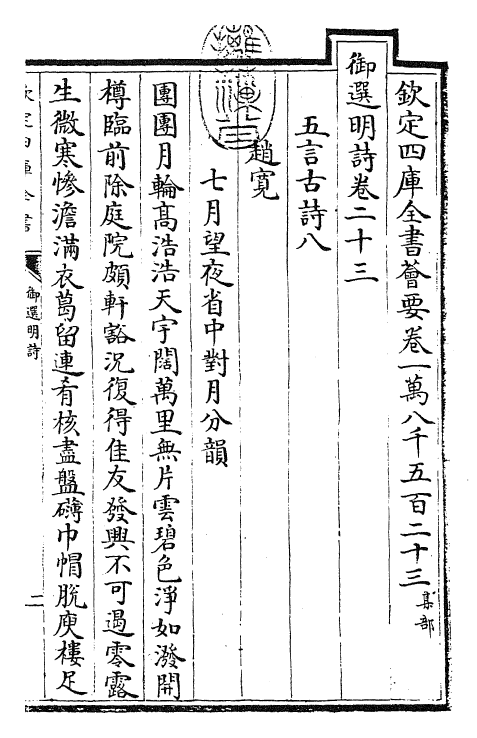 欽定四庫全書薈要卷一萬八千五百二十三集部
御選明詩卷二十三
五言古詩八
趙寛
七月望夜省中對月分韻
團團月輪髙浩浩天宇闊萬里無片雲碧色淨如潑開
樽臨前除庭院頗軒豁況復得佳友發興不可遏零露
生微寒慘澹滿衣葛留連肴核盡盤礴巾帽脱庾樓足
欽定四庫全書
御選明詩